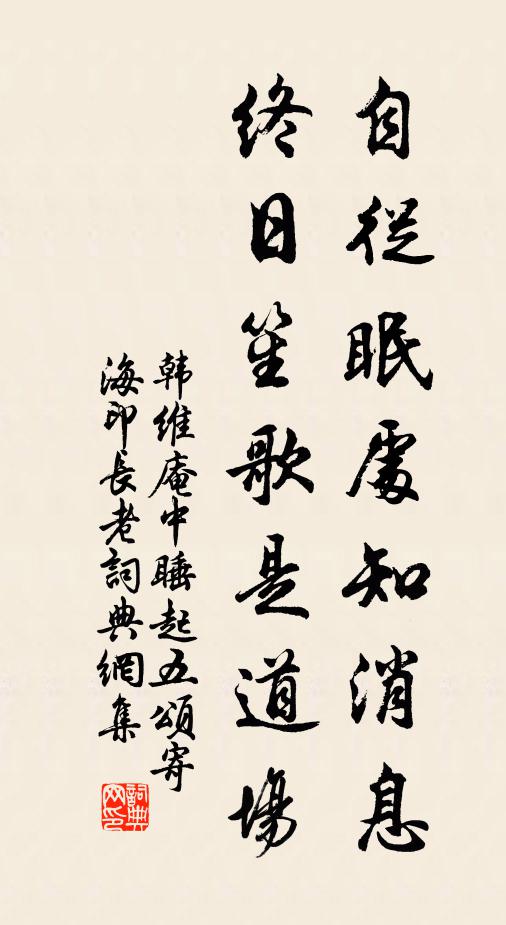 自從眠處知消息
終日笙歌是道場
韩維庵中睡起五頌寄
海印長老詞典網集
詞典
网印